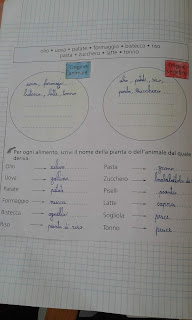 olio • uova • patate • formaggio • bistecca • riso
pasta • zucchero • latte • tonno
Origine animale
Origine vegetale
uova, formaggio
bistecca, latte, tonno
olio, patate, riso,
pasta, zucchero
Per ogni alimento, scrivi il nome della pianta o dell'animale dal quale
deriva.
Olio → ulivo Pasta → grano
Uova → gallina Zucchero →
Patate → patata Piselli → pianta
Formaggio → mucca Latte → capra
Bistecca → agnello Sogliola → pesce
Riso → pianta di riso Tonno → pesce